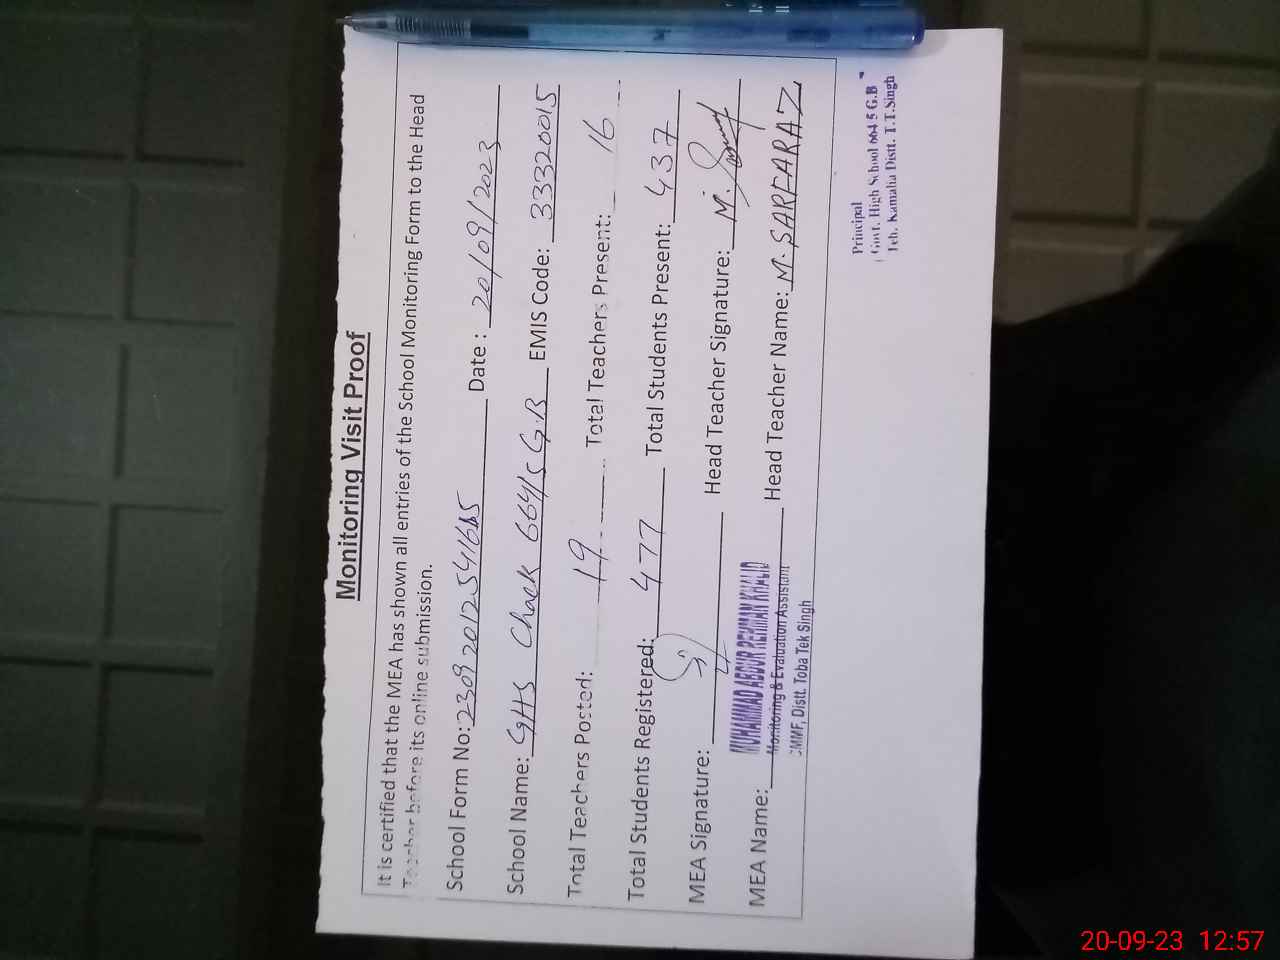 Monitoring Visit Proof
It is certified that the MEA has shown all entries of the School Monitoring Form to the Head
Teacher before its online submission.
School Form No: Date : 20/09/2023
School Name: GHS Chack 664/5 G.B EMIS Code: 33320015
Total Teachers Posted: 19 Total Teachers Present: 16
Total Students Registered: 477 Total Students Present: 437
MEA Signature: Head Teacher Signature: M.
MEA Name: MUHAMMAD ABDUR REHMAN KHALID Head Teacher Name: M. SARFARAZ
Monitoring & Evaluation Assistant
CMMF, Distt. Toba Tek Singh
Principal
Govt. High School 664 5 G.B
Teh. Kamalia Distt. T.T.Singh
20-09-23 12:57